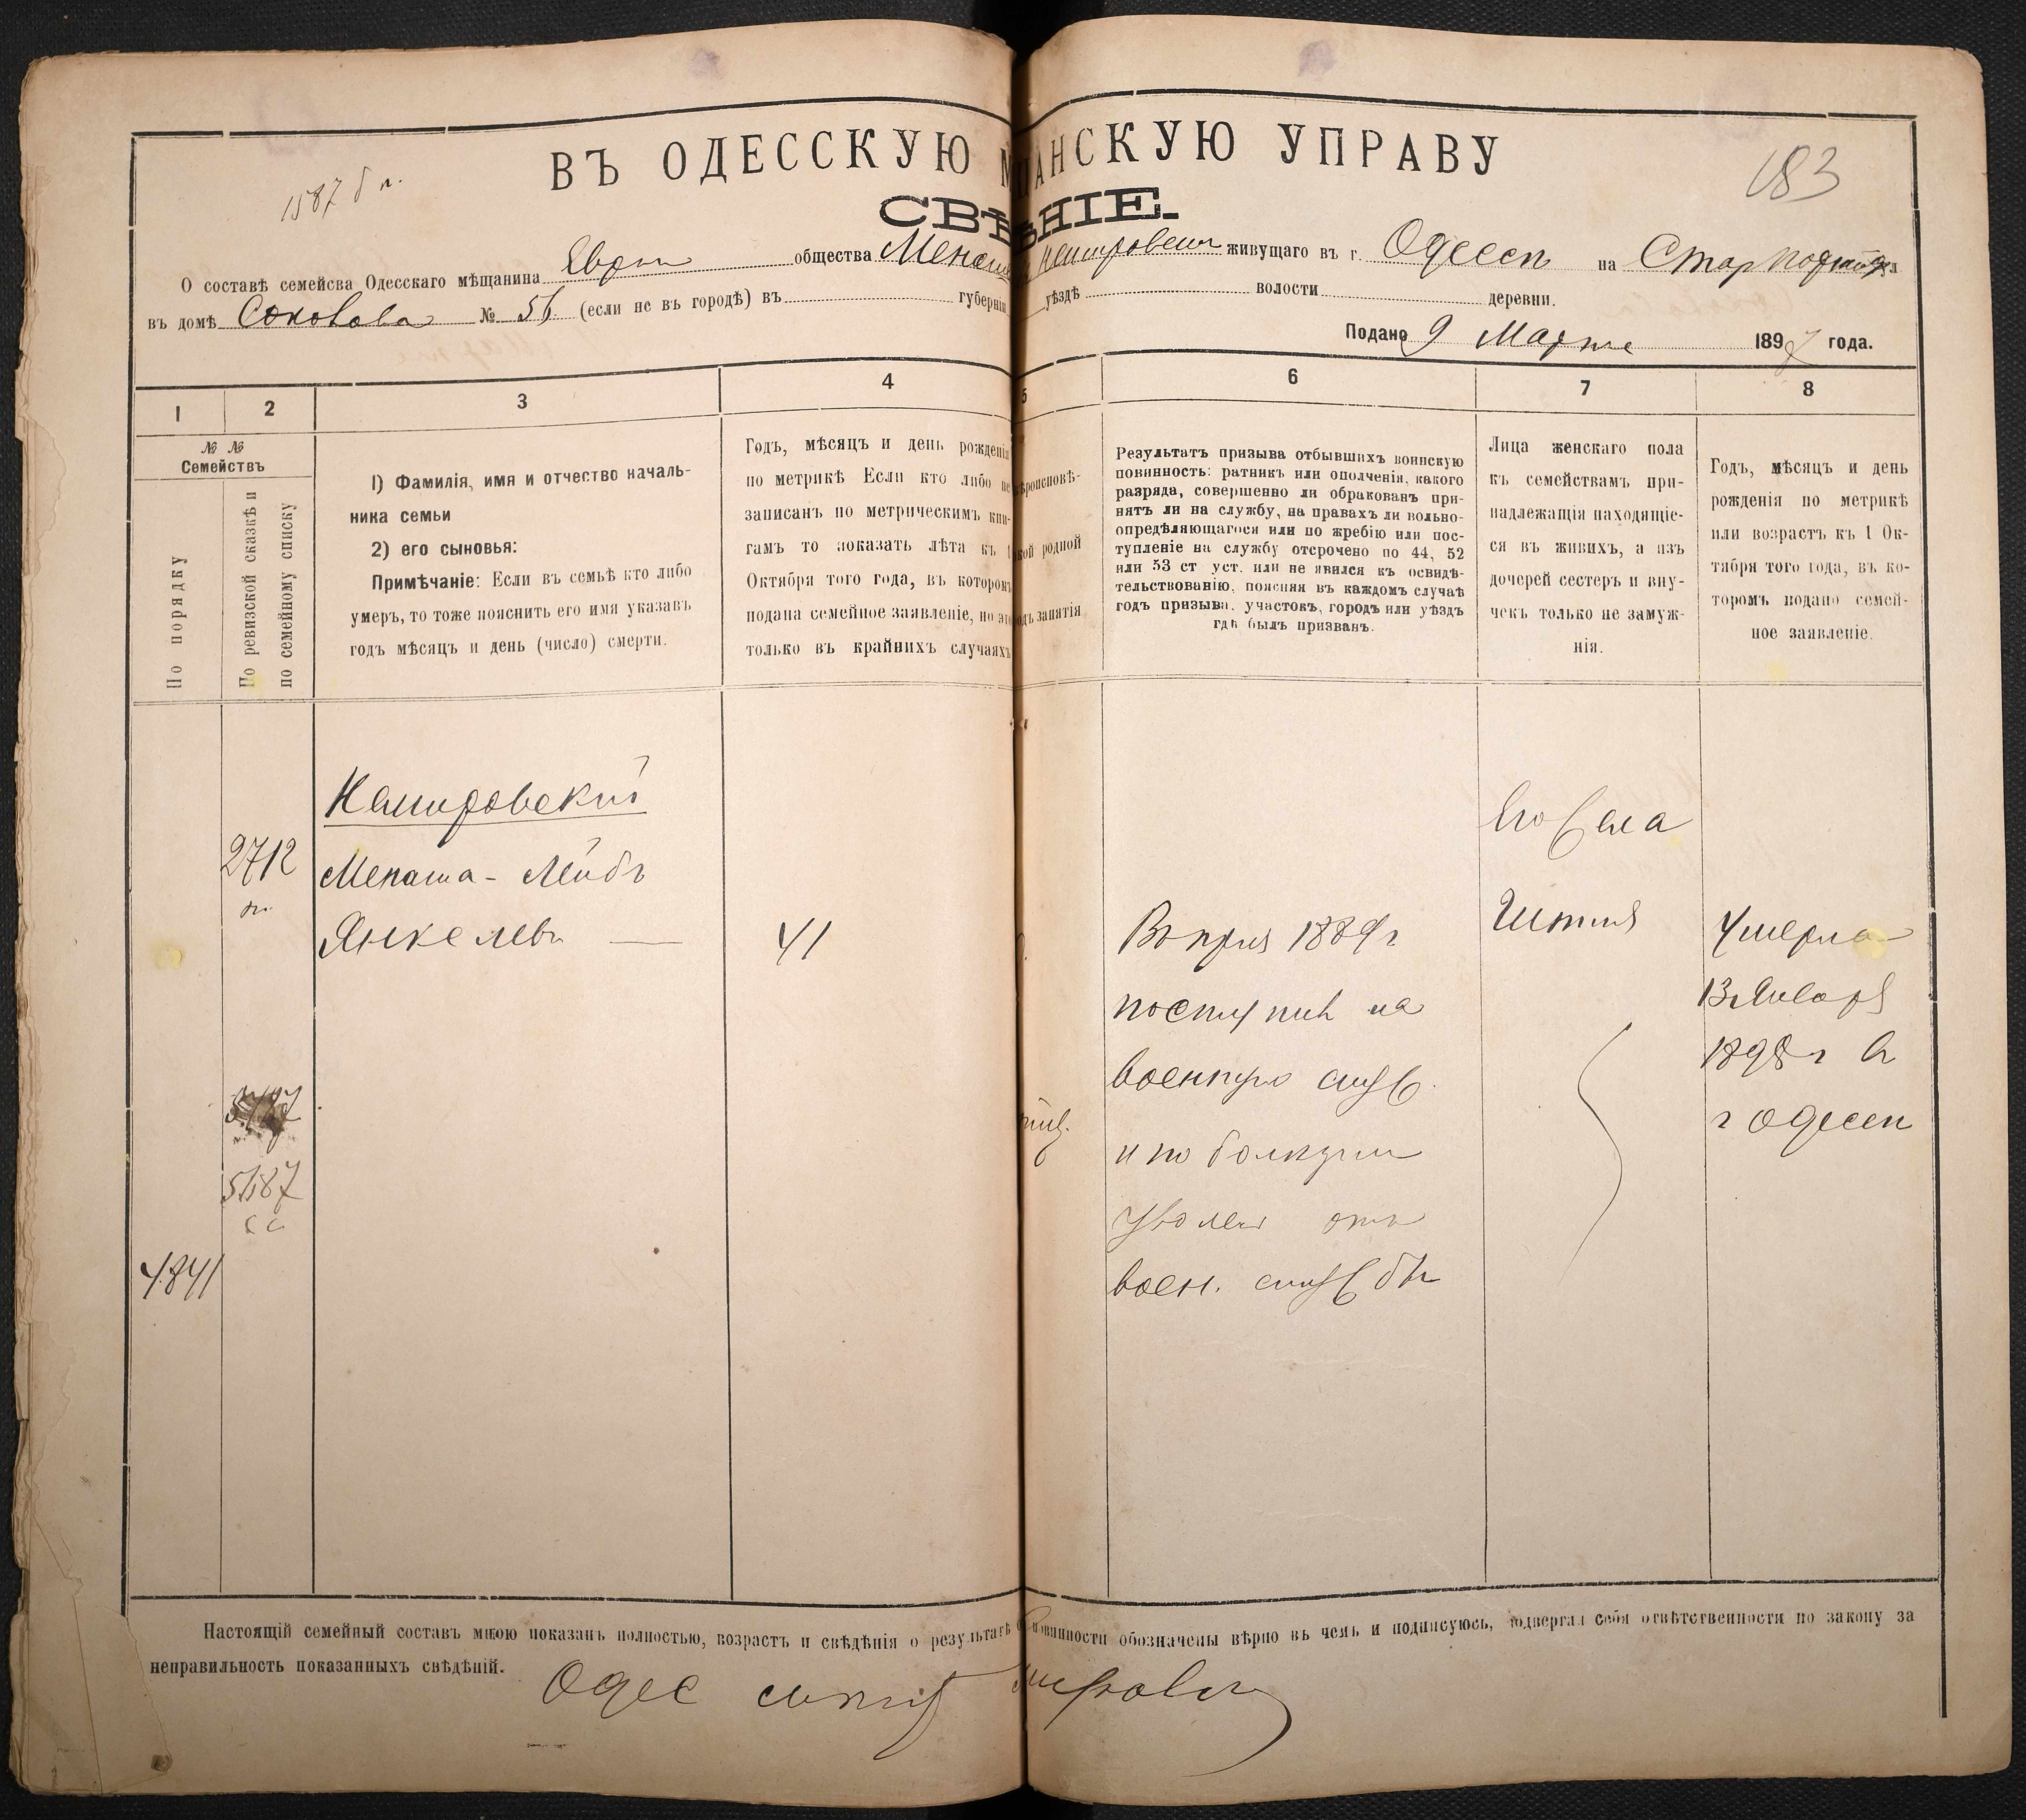 ВЪ ОДЕССКУЮ М АНСКУЮ УПРАВУ
183
1587 б п.
СВѢ НІЕ.
О составѣ семейсва Одесскаго мѣщанина Евреи общества Менаш Немировски живущаго въ г. Одесси на Стар Портоф ул
въ домѣ Соколова № 56 (если не въ городѣ) въ губерніи уѣздѣ волости деревни.
Подано 9 Марта 1898 года.
1 2 3 4 5 6 7 8
№ №
Семействъ
По порядку
По ревизской сказкѣ и
по семейному списку
1) Фамилія, имя и отчество началь-
ника семьи
2) его сыновья:
Примѣчаніе: Если въ семьѣ кто либо
умеръ, то тоже пояснить его имя указавъ
годъ мѣсяцъ и день (число) смерти.
Годъ, мѣсяцъ и день рожденія
по метрикѣ Если кто либо не
записанъ по метрическимъ кни-
гамъ то показать лѣта къ 1
Октября того года, въ которомъ
подана семейное заявленіе, но это
только въ крайнихъ случаяхъ
ѣроисповѣ-
кой родной
одъ занятія
Результатъ призыва отбывшихъ воинскую
повинность: ратникъ или ополченія, какого
разряда, совершенно ли обракованъ при-
нятъ ли на службу, на правахъ ли вольно-
опредѣляющагося или по жребію или пос-
тупленіе на службу отсрочено по 44, 52
или 53 ст уст. или не явился къ освидѣ-
тельствованію, поясняя въ каждомъ случаѣ
годъ призыва, участокъ, городъ или уѣздъ
гдѣ былъ призванъ.
Лица женскаго пола
къ семействамъ при-
надлежащія находящіе-
ся въ живихъ, а изъ
дочерей сестеръ и вну-
чекъ только не замуж-
нія.
Годъ, мѣсяцъ и день
рожденія по метрикѣ
или возрастъ къ 1 Ок-
тября того года, въ ко-
торомъ подано семей-
ное заявленіе.
Немировский
2712
Менаша - Лейбъ
Янкелевъ
41
5187
4841
Въ призъ 1889 г
поступил на
военную служ.
и по болезни
уволен отъ
воен. службы
Его Жена
Шпт
Умерла
13 Января
1898 г въ
г Одессе
Настоящій семейный составъ мною показанъ полностью, возрастъ и свѣдѣнія о результатѣ повинности обозначены вѣрно въ чемъ и подписуюсь, подвергая себя отвѣтственности по закону за
неправильность показанныхъ свѣдѣній.
Одес